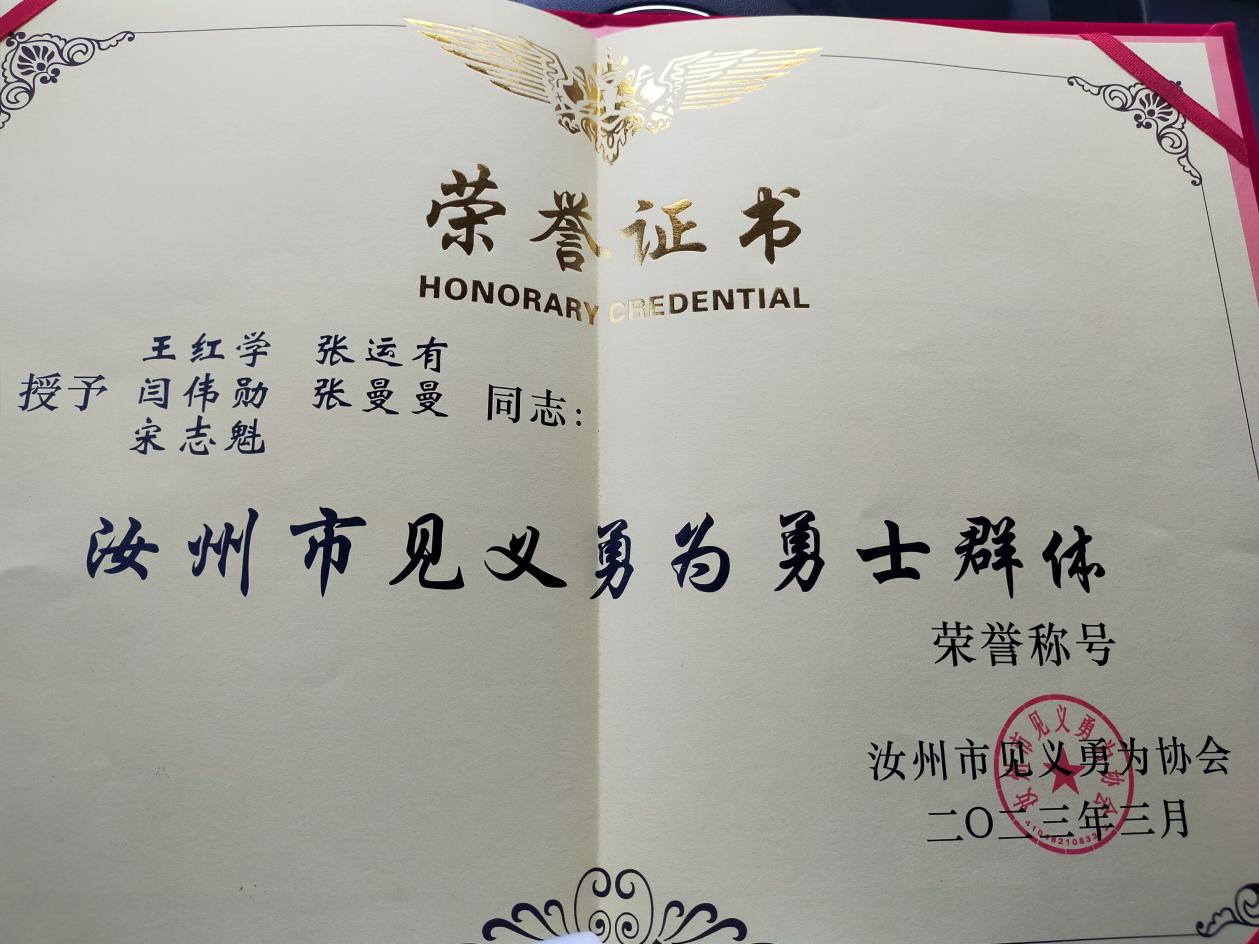 荣誉证书
HONORARY CREDENTIAL
王红学 张运有
授予 闫伟勋 张曼曼 同志:
宋志魁
汝州市见义勇为勇士群体
荣誉称号
汝州市见义勇为协会
二〇二三年三月
汝州市见义勇为协会